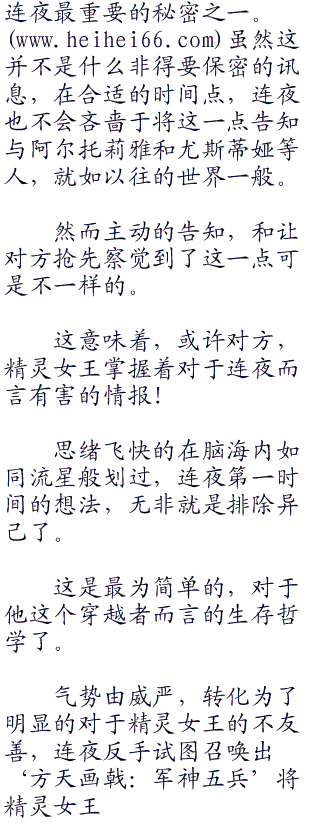 连夜最重要的秘密之一。
(www.heihei66.com)虽然这
并不是什么非得要保密的讯
息，在合适的时间点，连夜
也不会吝啬于将这一点告知
与阿尔托莉雅和尤斯蒂娅等
人，就如以往的世界一般。
然而主动的告知，和让
对方抢先察觉到了这一点可
是不一样的。
这意味着，或许对方，
精灵女王掌握着对于连夜而
言有害的情报！
思绪飞快的在脑海内如
同流星般划过，连夜第一时
间的想法，无非就是排除异
己了。
这是最为简单的，对于
他这个穿越者而言的生存哲
学了。
气势由威严，转化为了
明显的对于精灵女王的不友
善，连夜反手试图召唤出
‘方天画戟：军神五兵’将
精灵女王